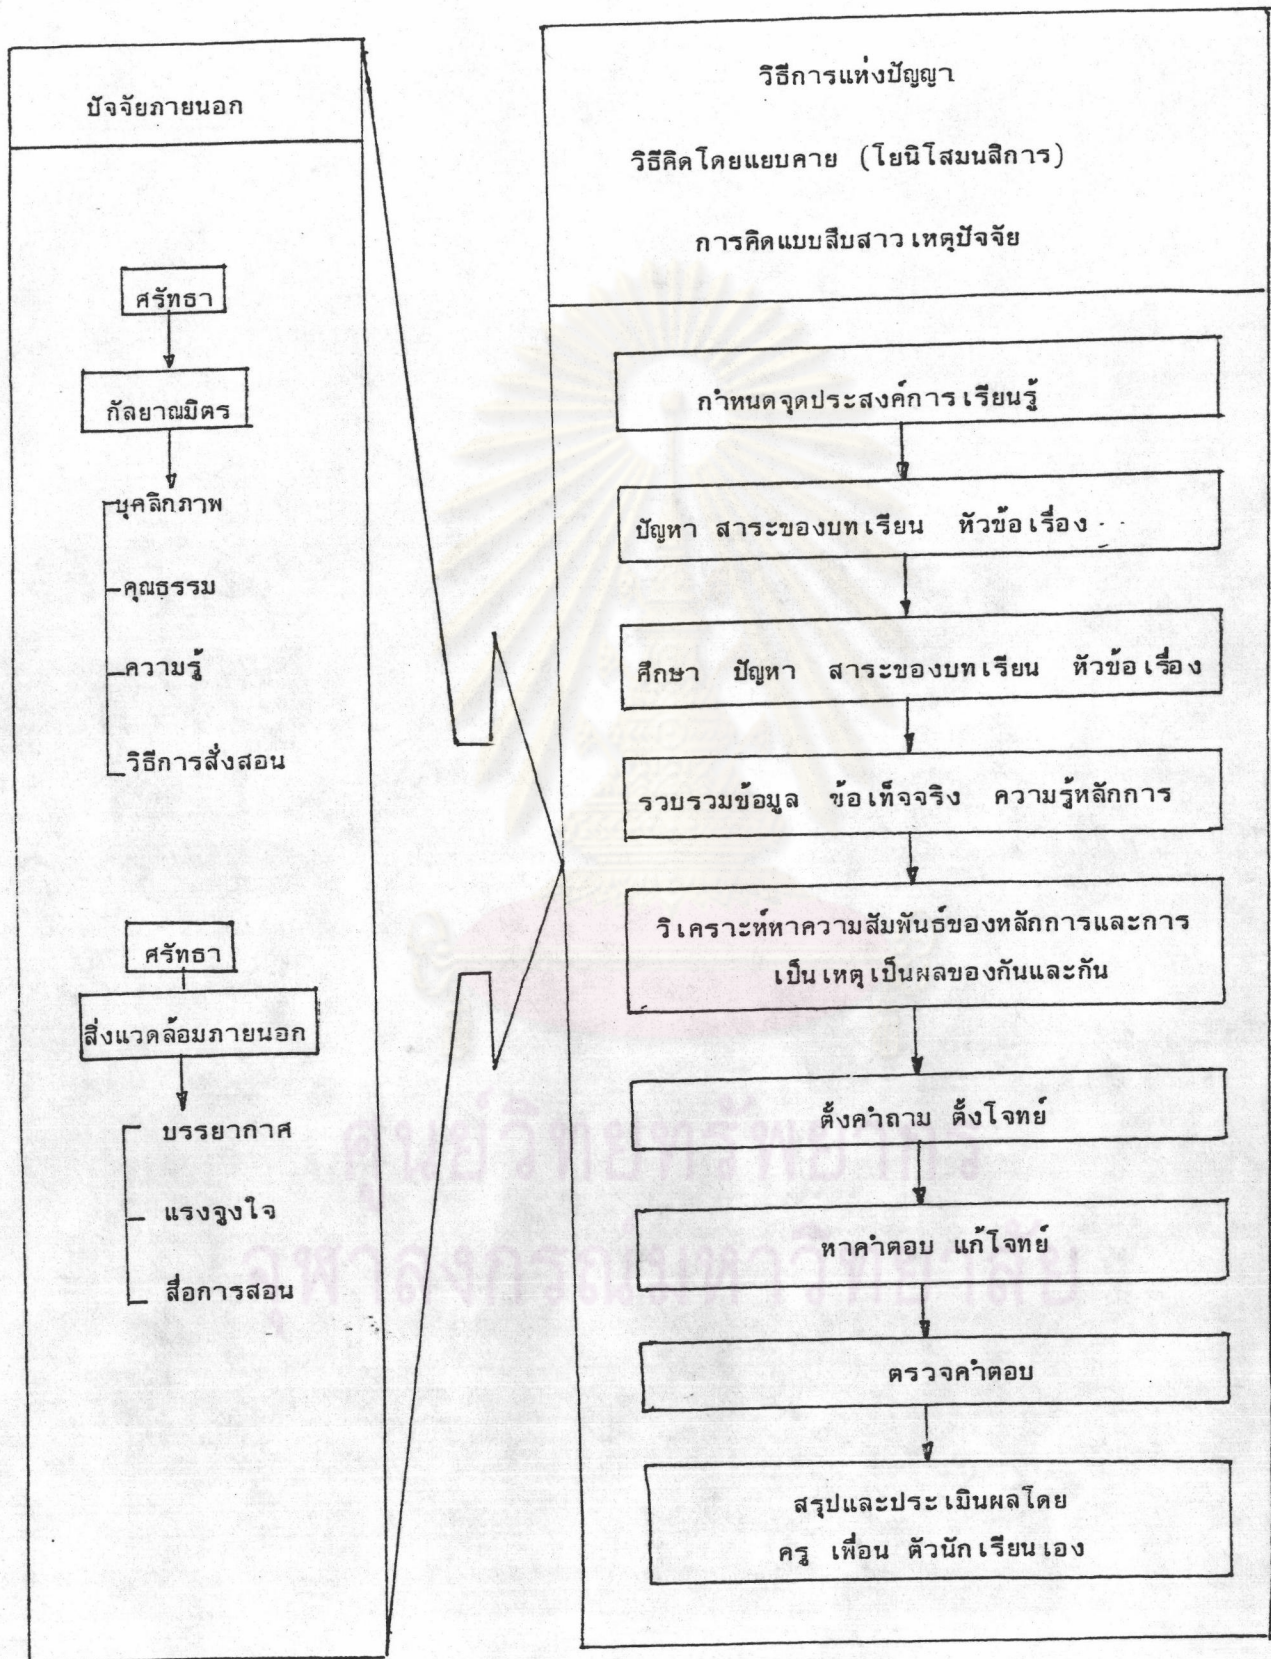 ปัจจัยภายนอก
ศรัทธา
กัลยาณมิตร
บุคลิกภาพ
คุณธรรม
ความรู้
วิธีการสั่งสอน
ศรัทธา
สิ่งแวดล้อมภายนอก
บรรยากาศ
แรงจูงใจ
สื่อการสอน
วิธีการแห่งปัญญา
วิธีคิดโดยแยบคาย (โยนิโสมนสิการ)
การคิดแบบสืบสาวเหตุปัจจัย
กำหนดจุดประสงค์การเรียนรู้
ปัญหา สาระของบทเรียน หัวข้อเรื่อง
ศึกษา ปัญหา สาระของบทเรียน หัวข้อเรื่อง
รวบรวมข้อมูล ข้อเท็จจริง ความรู้หลักการ
วิเคราะห์หาความสัมพันธ์ของหลักการและการ
เป็นเหตุเป็นผลของกันและกัน
ตั้งคำถาม ตั้งโจทย์
หาคำตอบ แก้โจทย์
ตรวจคำตอบ
สรุปและประเมินผลโดย
ครู เพื่อน ตัวนักเรียนเอง
ศูนย์วิทยทรัพยากร
จุฬาลงกรณ์มหาวิทยาลัย